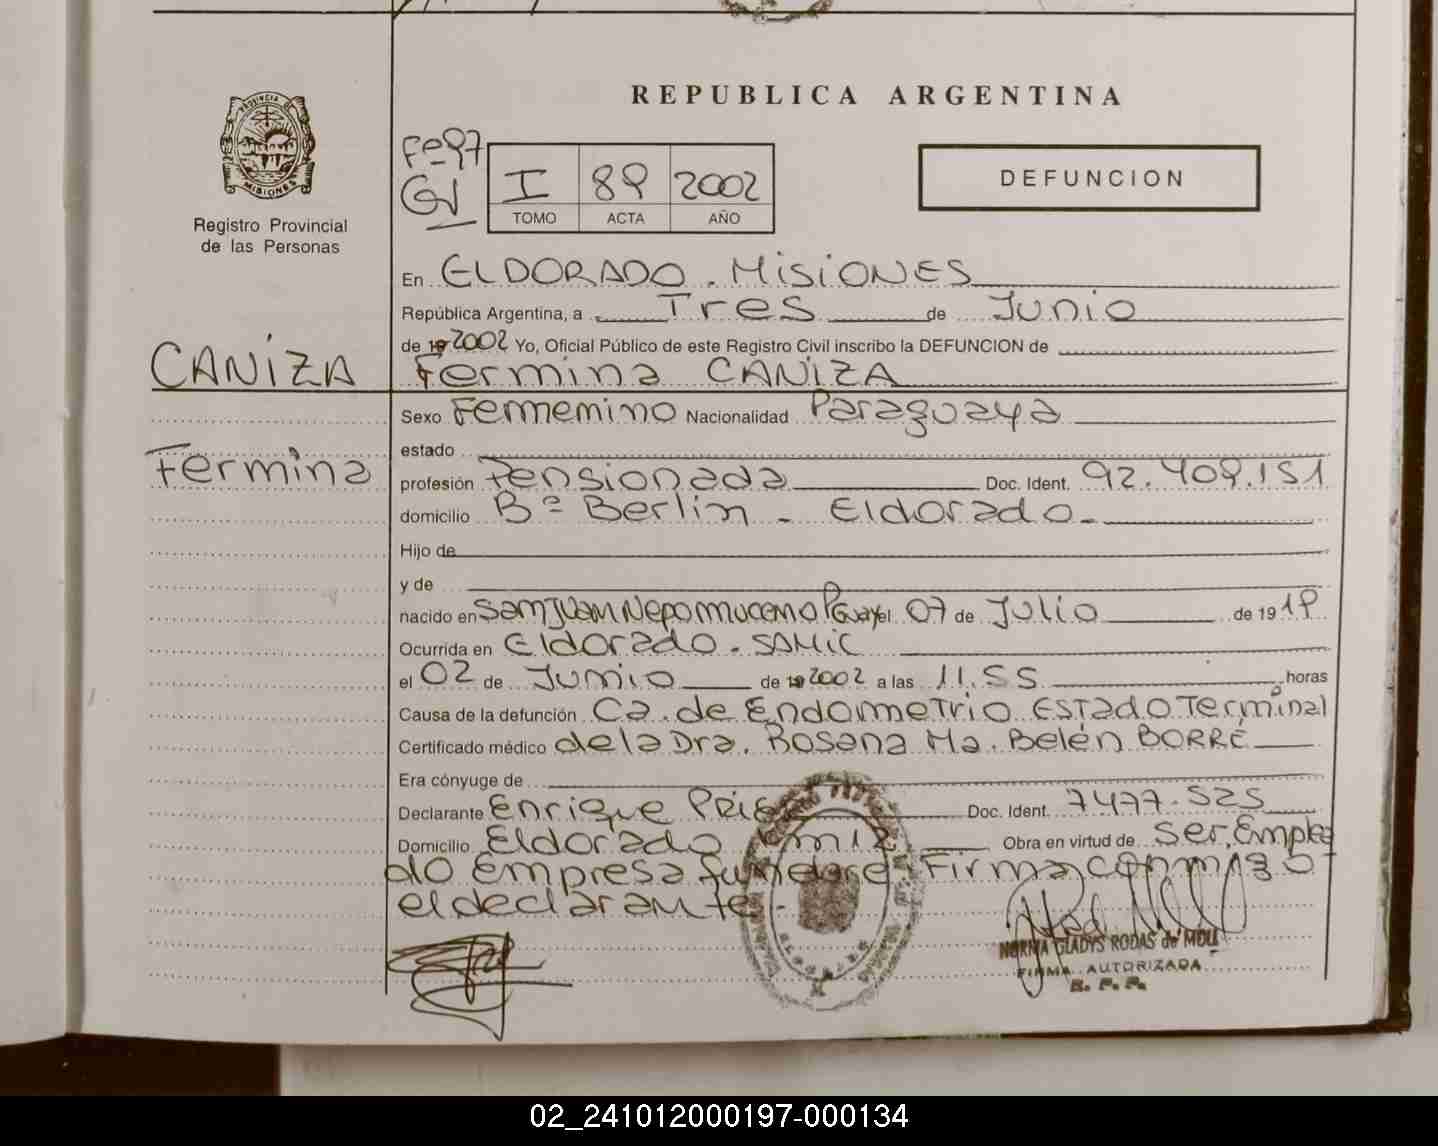 REPUBLICA ARGENTINA
PROVINCIA DE
MISIONES
Registro Provincial
de las Personas
I 89 2002
TOMO ACTA AÑO
DEFUNCION
En ELDORADO. MISIONES
República Argentina, a Tres de Junio
de 19 2002 Yo, Oficial Público de este Registro Civil inscribo la DEFUNCION de
CANIZA
Fermina CANIZA
Sexo Fememino Nacionalidad Paraguaya
estado
Fermina
profesión Pensionada Doc. Ident. 92.409.151
domicilio Bº Berlin - Eldorado-
Hijo de
y de
nacido en San Juan Nepomuceno Pguay el 07 de Julio de 19 19
Ocurrida en Eldorado. SAMIC
el 02 de Junio de 19 2002 a las 11.55 horas
Causa de la defunción Ca. de Endometrio Estado Terminal
Certificado médico de la Dra. Rosana Ma. Belén BORRE
Era cónyuge de
Declarante Enrique Doc. Ident. 7477.525
Domicilio Eldorado Km 12 Obra en virtud de Ser, Emplea
do Empresa funebre- Firma conmigo
el declarante-
NORMA GLADYS RODAS de MOLL
FIRMA AUTORIZADA
R. P. P.
02_241012000197-000134